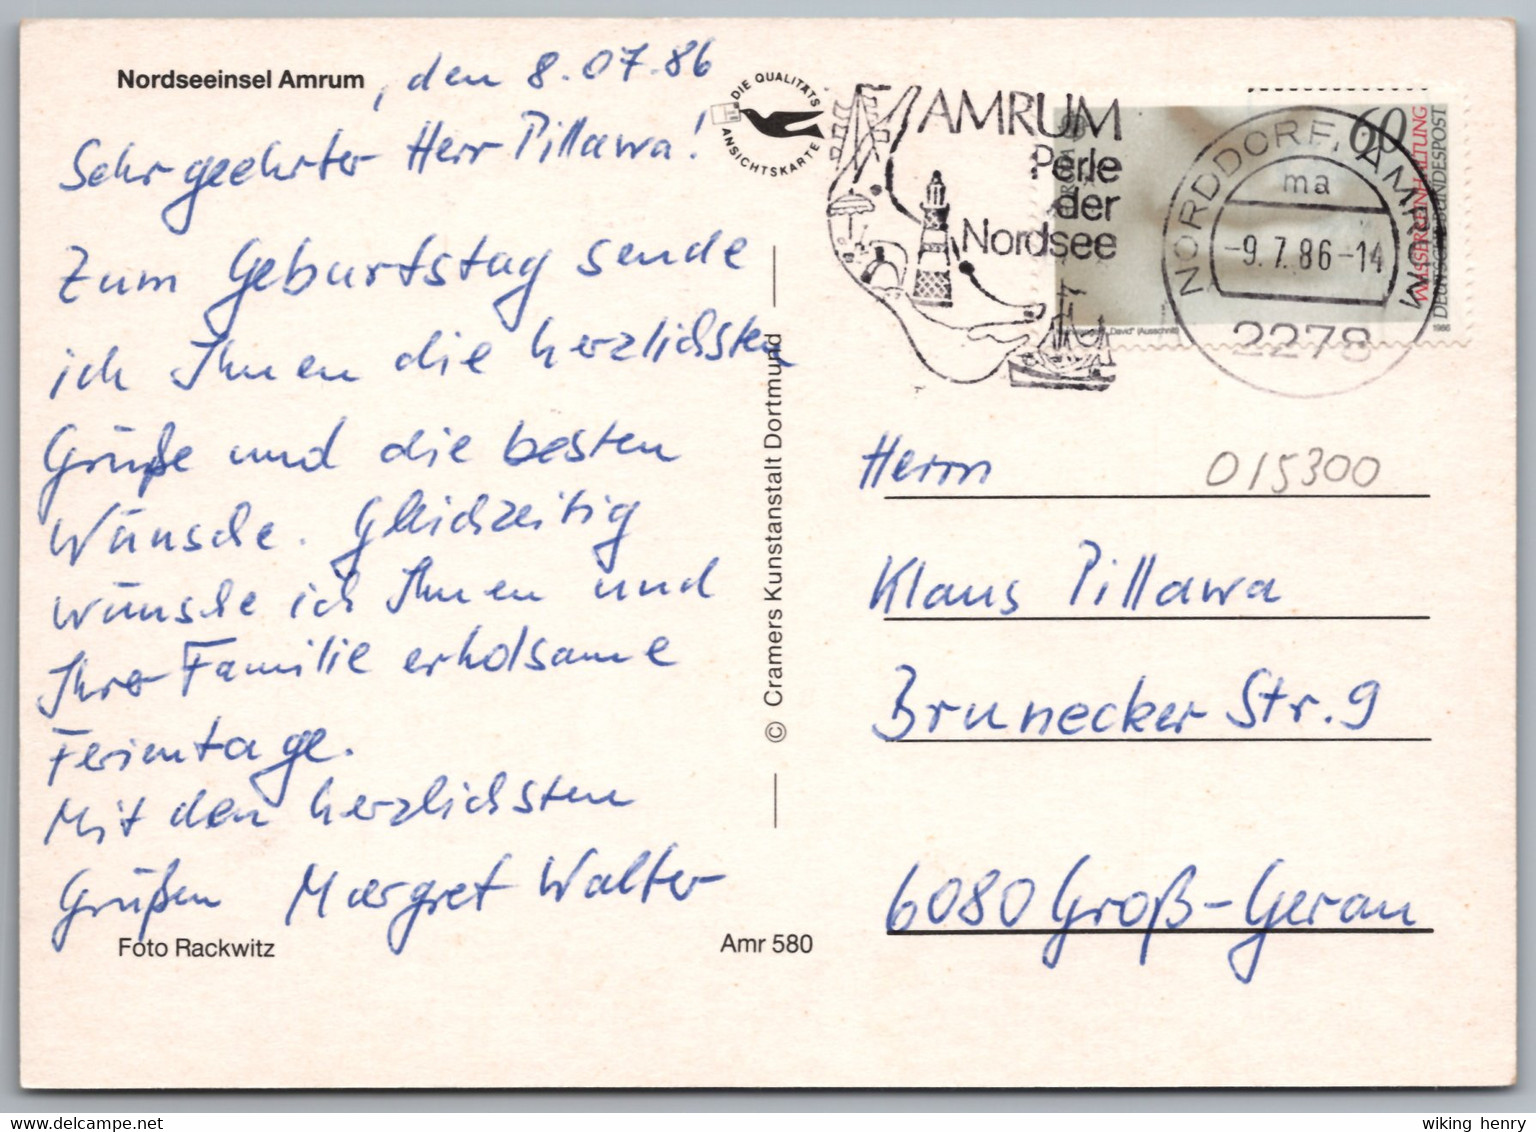 Nordseeinsel Amrum, den 8.07.86
Sehr geehrter Herr Pillawa!
Zum Geburtstag sende
ich Ihnen die herzlichsten
Grüße und die besten
Wünsche. Gleichzeitig
wünsche ich Ihnen und
Ihrer Familie erholsame
Ferientage.
Mit den herzlichsten
Grüßen Margret Walter
Foto Rackwitz
Amr 580
© Cramers Kunstanstalt Dortmund
DIE QUALITÄTS
ANSICHTSKARTE
AMRUM
Perle
der
Nordsee
60
WASSERREINHALTUNG
DEUTSCHE BUNDESPOST
"David" (Ausschnitt)
1986
NORDDORF, AMRUM
ma
-9.7.86-14
2278
Herrn
015300
Klaus Pillawa
Brunecker Str. 9
6080 Groß-Gerau
wiking henry